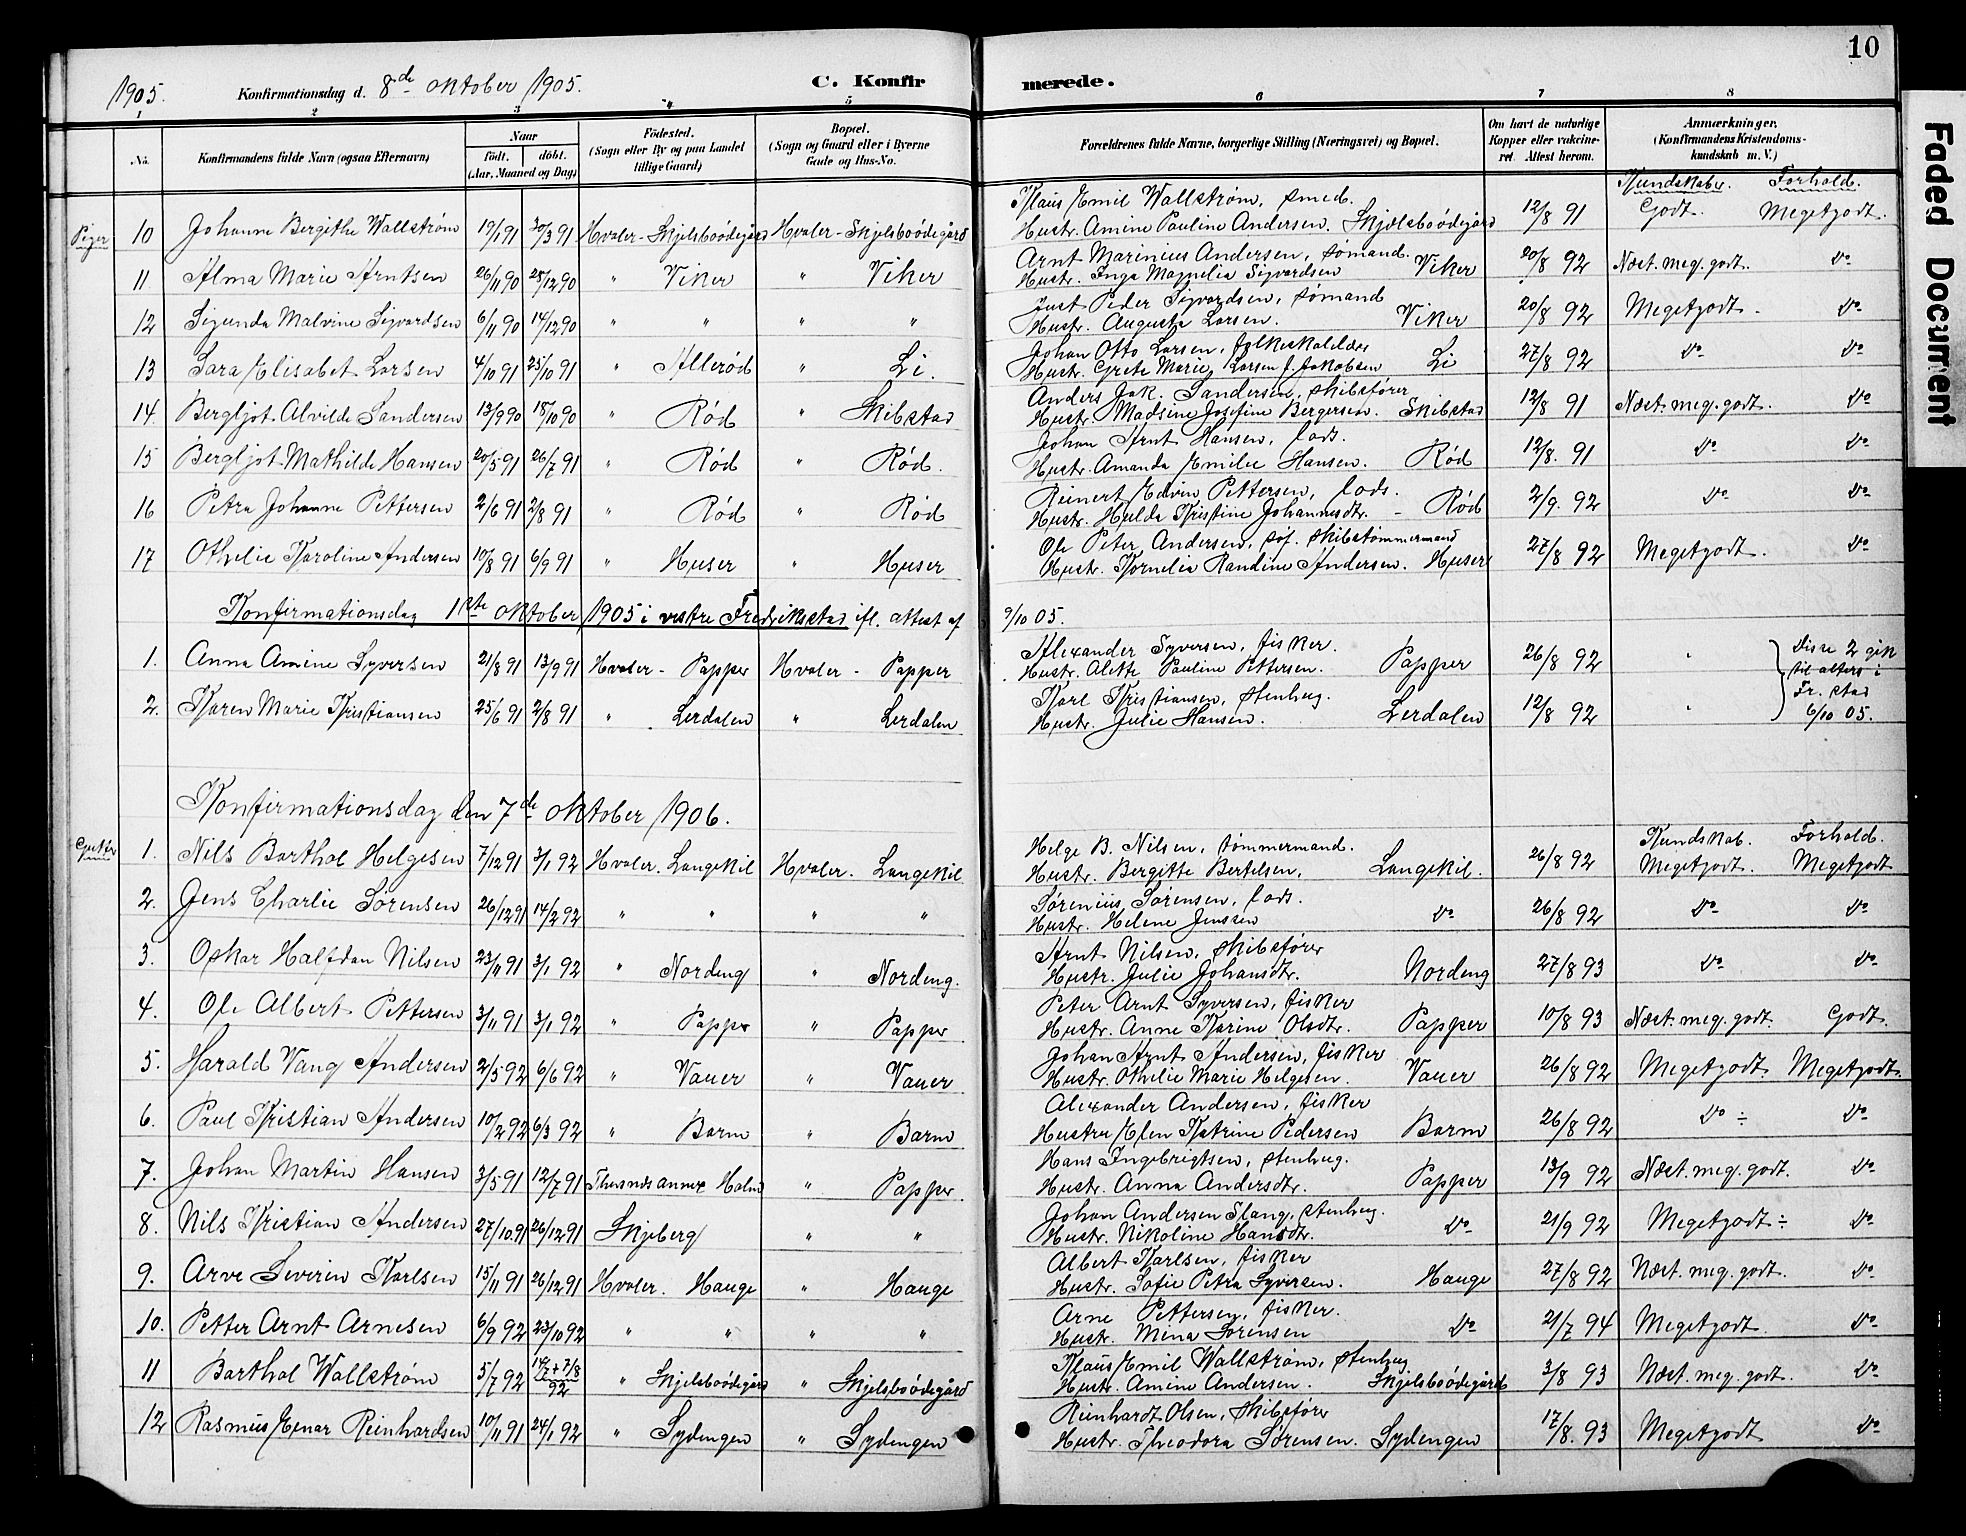 10
1905. Konfirmationsdag d. 8de oktober 1905. C. Konfirmerede.
1 2 3 4 5 6 7 8
No. Konfirmandens fulde Navn (ogsaa Efternavn) Naar født. døbt. (Aar, Maaned og Dag) Födested. (Sogn eller By og paa Landet tillige Gaard) Bopæl. (Sogn og Gaard eller i Byerne Gade og Hus-No. Forældrenes fulde Navne, borgerlige Stilling (Næringsvei) og Bopæl. Om havt de naturlige Kopper eller vakcineret. Attest herom. Anmærkninger, (Konfirmandens Kristendomskundskab m. V.)
Kundskaber. Forhold.
Klaus Emil Wallstrøm, smed.
Piger 10 Johanne Bergithe Wallstrøm 19/1 91 30/3 91 Hvaler - Skjelsboödegård Hvaler - Skjelsboödegård Hustr. Amine Pauline Andersen. Skjelsboödegård 12/8 91 Godt. Megetgodt.
Arnt Marinius Andersen, sømand.
11 Alma Marie Arntsen 26/11 90 25/12 90 " Viker " Viker Hustr. Inga Magnelia Sigvardsen Viker 20/8 92 Næst. meg. godt. do
Just Peder Sigvardsen, sømand
12 Sigunda Malvine Sigvardsen 6/11 90 14/12 90 " " " " Hustr. Augusta Larsen. Viker 20/8 92 Megetgodt. do
Johan Otto Larsen,
13 Sara Elisabet Larsen 4/10 91 25/10 91 " Allerød " Li. Hustr. Grete Marie Larsen f. Jakobsen Li 27/8 92 do do
Anders Jak. Sandersen, skibsfører
14. Bergljot Alvilde Sandersen 13/9 90 18/10 90 " Rød " Skibstad Hustr. Madsine Josefine Bergersen. Skibstad 12/8 91 Næst. meg. godt. do
Johan Arnt Hansen, lods.
15 Bergljot Mathilde Hansen 20/5 91 26/7 91 " Rød " Rød. Hustr. Amanda Emilie Hansen. Rød 12/8. 91 do do
Reinert Edvin Pettersen, lods.
16 Petra Johanne Pettersen 2/6 91 2/8 91 Rød " Rød Hustr. Hulda Kristine Johannesdtr. - Rød 2/9. 92 do do
Ole Peter Andersen, søf. skibstømmermand
17 Othelie Karoline Andersen 10/8 91 6/9 91 " Huser " Huser Hustr. Kornelia Randine Andersen. Huser 27/8 92 Megetgodt. do
Konfirmationsdag 1ste oktober 1905 i vestre Fredriksstad ifl. attest af 9/10 05.
Alexander Syversen, fisker.
1. Anna Amine Syversen 21/8 91 13/9 91 Hvaler - Papper Hvaler - Papper Hustr. Alette Pauline Pettersen. Papper 26/8 92 " Disse 2 gik til alters i Fr. stad 6/10 05.
Karl Kristiansen, stenhug.
2. Karen Marie Kristiansen 25/6 91 2/8 91 " Lerdalen " Lerdalen Hustr. Julie Hansen. Lerdalen 12/8 92 "
Konfirmationsdag den 7de oktober 1906.
Kundskab. Forhold.
Helge B. Nilsen, tømmermand.
Gutter 1. Nils Barthol Helgesen 7/12 91 3/1 92 Hvaler. Langekil Hvaler. Langekil Hustr. Bergitte Bertelsen, Langekil. 26/8 92 Megetgodt. Megetgodt
Sørenius Sørensen, lods.
2. Jens Charlie Sørensen 26/12 91 14/2 92 " " " " Hustr. Helene Jenssen do 26/8 92 do do
Arnt Nilsen, skibsfører
3. Oskar Halfdan Nilsen 23/11 91 3/1 92 " Nordeng " Nordeng. Hustr. Julie Johansdtr. Nordeng 27/8 93 do do
Peter Arnt Syversen, fisker
4. Ole Albert Pettersen 3/11 91 3/1 92 " Papper " Papper Hustr. Anne Karine Olsdtr. Papper 10/8 93 Næst. meg. godt. Godt.
Johan Arnt Andersen, fisker
5. Harald Vang Andersen 2/5 92 6/6 92 " Vauer " Vauer Hustr. Othelie Marie Helgesen. Vauer 26/8 92 Megetgodt. Megetgodt.
Alexander Andersen, fisker
6. Paul Kristian Andersen 10/2 92 6/3 92 " Barm " Barm Hustru Elen Katrine Pedersen Barm 26/8 92 do ÷ do
Hans Ingebrigtsen, stenhug.
7. Johan Martin Hansen 3/5 91 12/7 91 Thesunds annex Holm " Papper. Hustr. Anna Andersdtr. Papper 13/9 92 Næst. meg. godt. do
Johan Andersen Slang, stenhug.
8. Nils Kristian Andersen 27/10 91 26/12 91 Skjeberg " " Hustr. Nikoline Hansdtr. do 21/9 92 Megetgodt ÷ do
Albert Karlsen, fisker
9. Arve Severin Karlsen 15/11 91 26/12 91 Hvaler. Hauge " Hauge Hustr. Sofie Petra Syversen. Hauge 27/8 92 Næst. meg. godt. do
Arne Pettersen, fisker.
10. Petter Arnt Arnesen 6/9 92 23/10 92 " " " " Hustr. Mena Sørensen do 21/7 94 Megetgodt. do
Klaus Emil Wallstrøm, stenhug
11 Barthol Wallstrøm 5/7 92 14/7 + 7/8 92 " Skjelsboödegård " Skjelsboödegård Hustr. Amine Andersen. Skjelsboödegård 3/8 93 Næst. meg. godt. do
Reinhardt Olsen, skibsfører
12 Rasmus Einar Reinhardsen 10/11 91 24/1 92 " Sydengen " Sydengen Hustr. Theodora Sørensen. Sydengen 17/8. 93 Megetgodt do
Faded Document